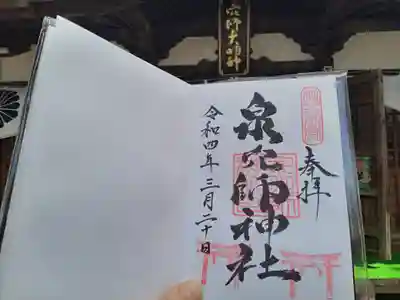 穴師大明神
奉拝
泉穴師神社
令和四年三月二十日